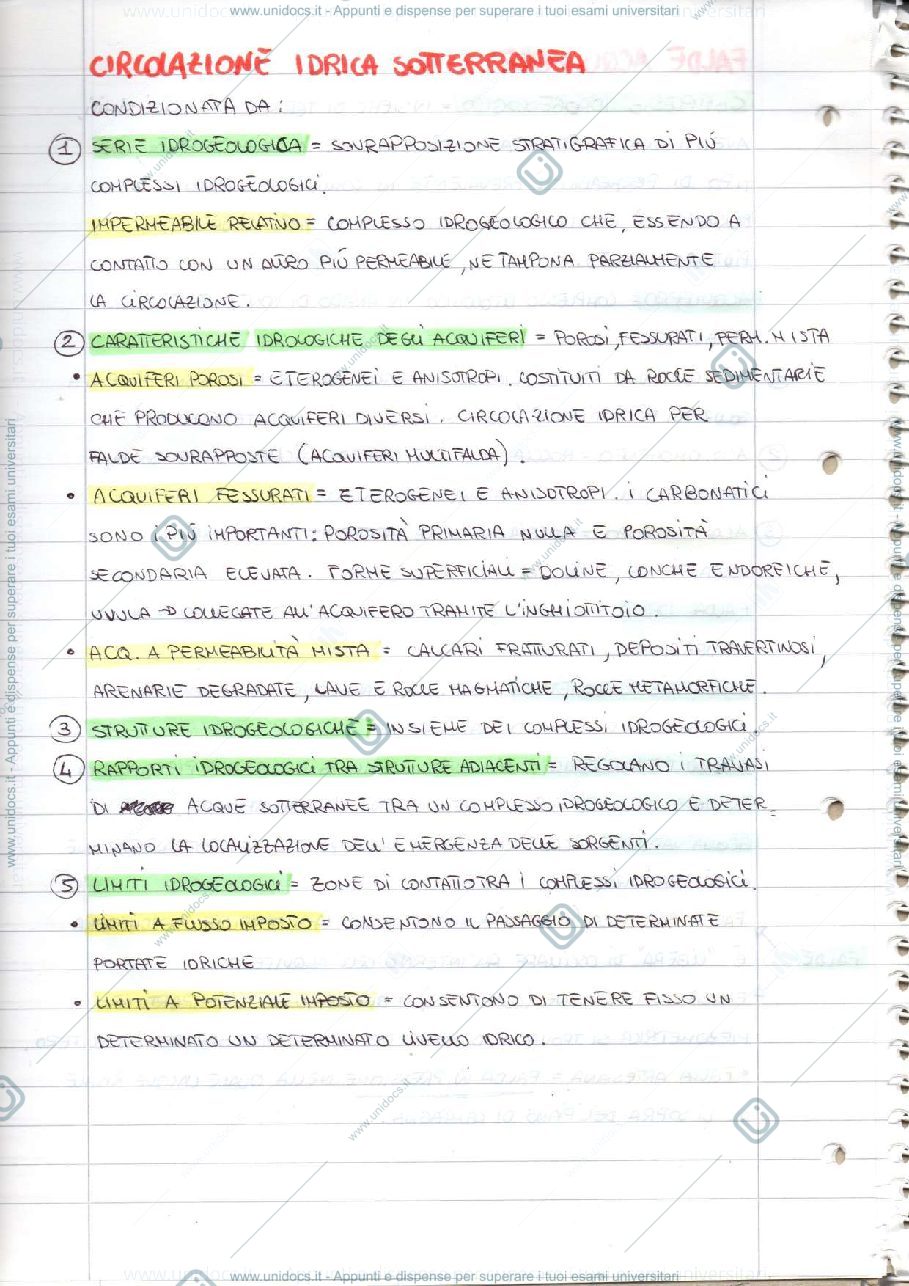 www.unidocs.it - Appunti e dispense per superare i tuoi esami universitari
CIRCOLAZIONE IDRICA SOTTERRANEA
CONDIZIONATA DA:
1 SERIE IDROGEOLOGICA = SOVRAPPOSIZIONE STRATIGRAFICA DI PIÚ
COMPLESSI IDROGEOLOGICI.
IMPERMEABILE RELATIVO = COMPLESSO IDROGEOLOGICO CHE, ESSENDO A
CONTATTO CON UN ALTRO PIÚ PERMEABILE, NE TAMPONA PARZIALMENTE
LA CIRCOLAZIONE.
2 CARATTERISTICHE IDROLOGICHE DEGLI ACQUIFERI = POROSI, FESSURATI, PERM. MISTA
• ACQUIFERI POROSI = ETEROGENEI E ANISOTROPI. COSTITUITI DA ROCCE SEDIMENTARIE
CHE PRODUCONO ACQUIFERI DIVERSI. CIRCOLAZIONE IDRICA PER
FALDE SOVRAPPOSTE (ACQUIFERI MULTIFALDA).
• ACQUIFERI FESSURATI = ETEROGENEI E ANISOTROPI. I CARBONATICI
SONO I PIÚ IMPORTANTI: POROSITÀ PRIMARIA NULLA E POROSITÀ
SECONDARIA ELEVATA. FORME SUPERFICIALI = DOLINE, CONCHE ENDOREICHE,
UVULA → COLLEGATE ALL'ACQUIFERO TRAMITE L'INGHIOTTITOIO.
• ACQ. A PERMEABILITÀ MISTA = CALCARI FRATTURATI, DEPOSITI TRAVERTINOSI,
ARENARIE DEGRADATE, LAVE E ROCCE MAGMATICHE, ROCCE METAMORFICHE.
3 STRUTTURE IDROGEOLOGICHE = INSIEME DEI COMPLESSI IDROGEOLOGICI
4 RAPPORTI IDROGEOLOGICI TRA STRUTTURE ADIACENTI = REGOLANO I TRAVASI
DI ACQUE SOTTERRANEE TRA UN COMPLESSO IDROGEOLOGICO E DETER_
MINANO LA LOCALIZZAZIONE DELL'EMERGENZA DELLE SORGENTI.
5 LIMITI IDROGEOLOGICI = ZONE DI CONTATTO TRA I COMPLESSI IDROGEOLOGICI.
• LIMITI A FLUSSO IMPOSTO = CONSENTONO IL PASSAGGIO DI DETERMINATE
PORTATE IDRICHE
• LIMITI A POTENZIALE IMPOSTO = CONSENTONO DI TENERE FISSO UN
DETERMINATO UN DETERMINATO LIVELLO IDRICO.
www.unidocs.it - Appunti e dispense per superare i tuoi esami universitari